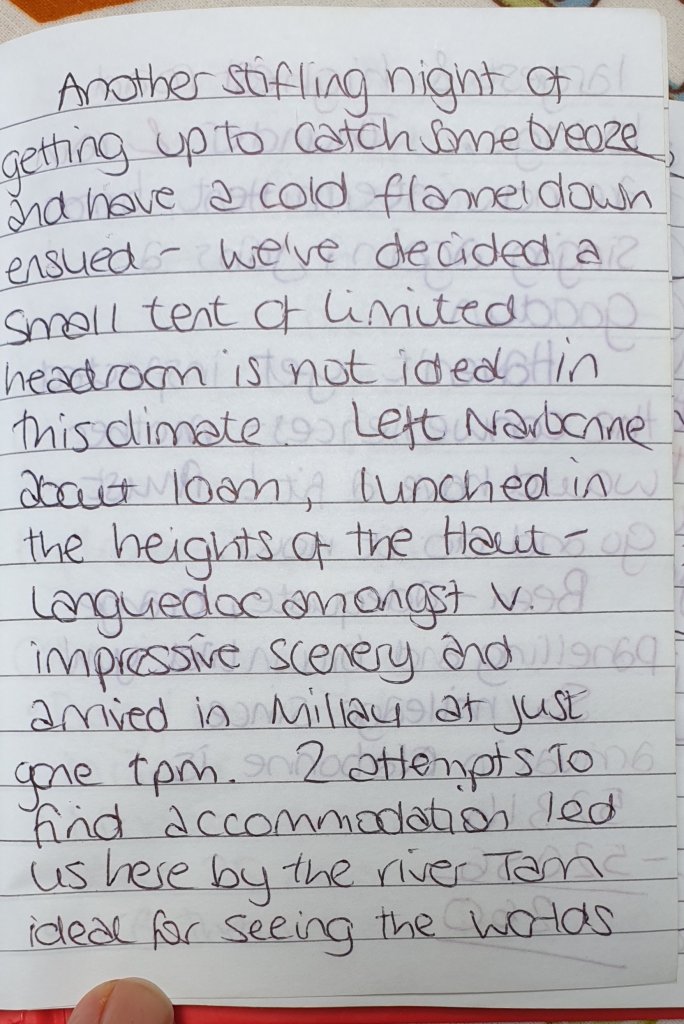 Another stifling night of
getting up to catch some breeze,
and have a cold flannel down
ensued - we've decided a
small tent of limited
headroom is not ideal in
this climate. Left Narbonne
about 10am, lunched in
the heights of the Haut-
Languedoc amongst v.
impressive scenery and
arrived in Millau at just
gone pm. 2 attempts to
find accommodation led
us here by the river Tarn
ideal for seeing the worlds